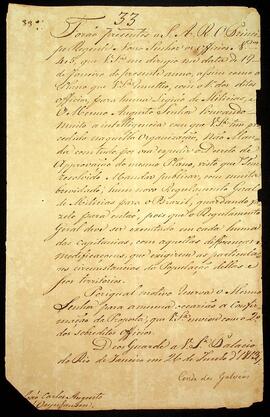 33
Forão presentes a S. A. R. O Princi-
pe Regente Nosso Senhor os officios
4 e 5, que V. S.ª dirigio na data de 19
de Janeiro do presente anno, assim como o
Plano que V. S.ª remetteo, com o 1.º dos ditos
officios, para huma Legião de Milicias; e
O Mesmo Augusto Senhor louvando
muito a intelligencia com que V. S.ª tem pro-
cedido naquella Organização, não Man-
da comtudo por ora expedir o Decreto de
Approvação do mesmo Plano, visto que Tem
resolvido Mandar publicar, com muita
brevidade, hum novo Regulamento Geral
de Milicias para o Brazil, guardando-se
para então, pois que o Regulamento
Geral deve ser executado em cada huma
das capitanias, com aquellas differenças e
modificaçoens, que exigirem as particula-
res circunstancias da População dellas e
seos territorios.
Por igual motivo reserva o Mesmo
Senhor para a mesma occasião a Confir-
mação da Proposta, que V. S.ª enviou com o 2.º
dos sobreditos officios.
Deos Guarde a V. S.ª Palacio
do Rio de Janeiro em 26 de Junho de 1813
Conde das Galveas
João Carlos Augusto
d'Oeynhausen